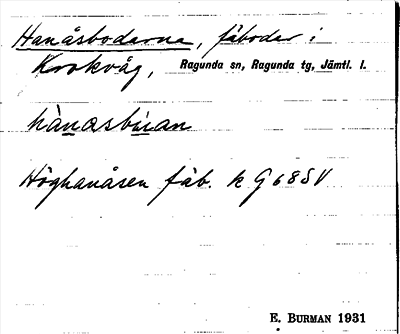 Hanåsbodarna, fäboder i
Krokvåg, Ragunda sn, Ragunda tg, Jämtl. l.
Höghanåsen fäb. k G 68 SV
E. BURMAN 1931